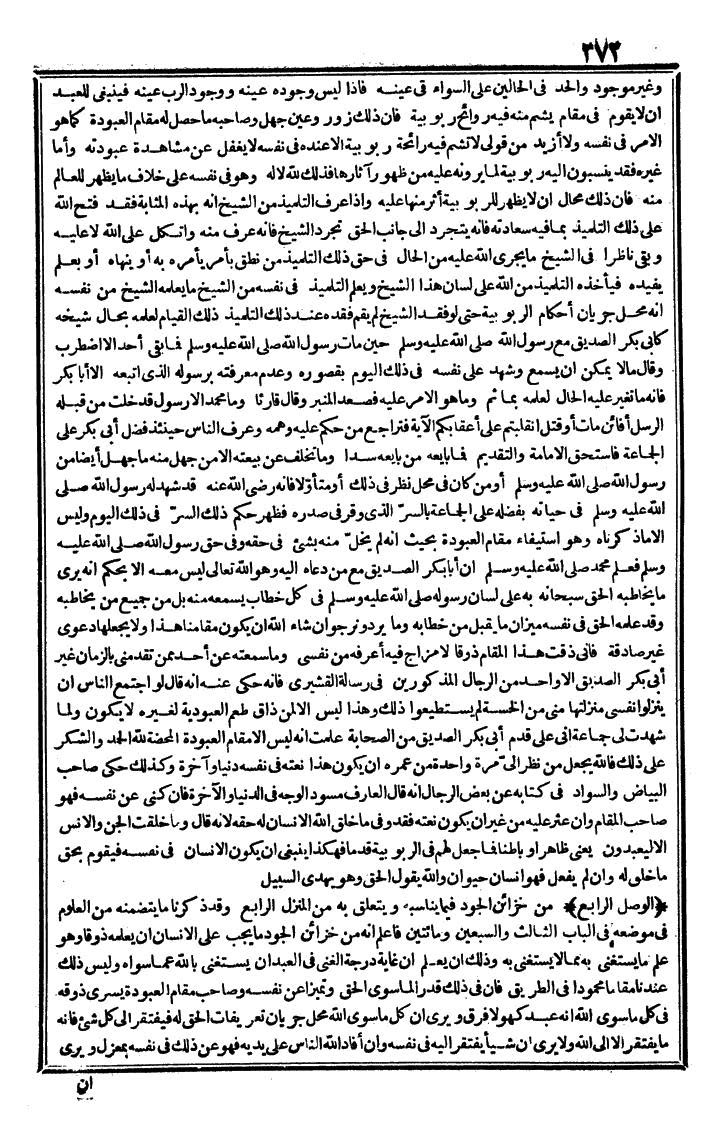 ٣٧٢
وغير موجود والحد فى الحالين على السواء فى عينه فاذا ليس وجوده عينه ووجود الرب عينه فينبغى للعبد
ان لا يقوم فى مقام يشم منه فيه روائح ربوبية فان ذلك زور وعين جهل وصاحبه ما حصل له مقام العبودة كما هو
الامر فى نفسه ولا أزيد من قولى لا تشم فيه رائحة ربوبية الا عنده فى نفسه لا يغفل عن مشاهدة عبودته وأما
غيره فقد ينسبون اليه ربوبية لما يرونه عليه من ظهور آثارها فذلك لله لا له وهو فى نفسه على خلاف ما يظهر للعالم
منه فان ذلك محال ان لا يظهر للربوبية أثر منها عليه واذا عرف التلميذ من الشيخ انه بهذه المثابة فقد فتح الله
على ذلك التلميذ بما فيه سعادته فانه يتجرد الى جانب الحق تجرد الشيخ فانه عرف منه واتكل على الله لا عليه
وبقى ناظرا فى الشيخ ما يجرى الله عليه من الحال فى حق ذلك التلميذ من نطق بأمر يأمره به أو ينهاه أو بعلم
يفيده فيأخذه التلميذ من الله على لسان هذا الشيخ ويعلم التلميذ فى نفسه من الشيخ ما يعلمه الشيخ من نفسه
انه محل جريان أحكام الربوبية حتى لو فقد الشيخ لم يقم فقده عند ذلك التلميذ ذلك القيام لعلمه بحال شيخه
كأبى بكر الصديق مع رسول الله صلى الله عليه وسلم حين مات رسول الله صلى الله عليه وسلم فما بقى أحد الا اضطرب
وقال ما لا يمكن ان يسمع وشهد على نفسه فى ذلك اليوم بقصوره وعدم معرفته برسوله الذى اتبعه الا أبا بكر
فانه ما تغير عليه الحال لعلمه بما ثم وما هو الامر عليه فصعد المنبر وقال قارئا وما محمد الا رسول قد خلت من قبله
الرسل أفائن مات أو قتل انقلبتم على أعقابكم الآية فتراجع من حكم عليه وهمه وعرف الناس حينئذ فضل أبى بكر على
الجماعة فاستحق الامامة والتقديم فما بايعه من بايعه سدا وما تخلف عن بيعته الا من جهل منه ما جهل أيضا من
رسول الله صلى الله عليه وسلم أو من كان فى محل نظر فى ذلك أو متأولا فانه رضى الله عنه قد شهد له رسول الله صلى
الله عليه وسلم فى حياته بفضله على الجماعة بالسر الذى وقر فى صدره فظهر حكم ذلك السر فى ذلك اليوم وليس
الا ما ذكرناه وهو استيفاء مقام العبودة بحيث انه لم يخل منه بشئ فى حقه وفى حق رسول الله صلى الله عليه
وسلم فعلم محمد صلى الله عليه وسلم ان أبا بكر الصديق مع من دعاه اليه وهو الله تعالى ليس معه الا بحكم انه يرى
ما يخاطبه الحق سبحانه به على لسان رسوله صلى الله عليه وسلم فى كل خطاب يسمعه منه بل من جميع من يخاطبه
وقد علمه الحق فى نفسه ميزان ما يقبل من خطابه وما يرد ونرجو ان شاء الله أن يكون مقامنا هذا ولا يجعلها دعوى
غير صادقة فانى ذقت هذا المقام ذوقا لا مزاج فيه أعرفه من نفسى وما سمعته عن أحد ممن تقدمنى بالزمان غير
أبى بكر الصديق الا واحد من الرجال المذكورين فى رسالة القشيرى فانه حكى عنه انه قال لو اجتمع الناس ان
ينزلوا نفسى منزلتها منى من الخسة لم يستطيعوا ذلك وهذا ليس الا لمن ذاق طعم العبودية لغيره لا يكون ولما
شهدت لى جماعة انى على قدم أبى بكر الصديق من الصحابة علمت انه ليس الا مقام العبودة المحضة لله الحمد والشكر
على ذلك فالله يجعل من نظر الىّ مرة واحدة من عمره ان يكون هذا نعته فى نفسه دنيا وآخرة وكذلك حكى صاحب
البياض والسواد فى كتابه عن بعض الرجال انه قال العارف مسود الوجه فى الدنيا والآخرة فان كنى عن نفسه فهو
صاحب المقام وان عثر عليه من غير ان يكون نعته فقد وفى ما خلق الله الانسان له حقه لانه قال وما خلقت الجن والانس
الا ليعبدون يعنى ظاهرا وباطنا فما جعل لهم فى الربوبية قدما فهكذا ينبغى ان يكون الانسان فى نفسه فيقوم بحق
ما خلق له وان لم يفعل فهو انسان حيوان والله يقول الحق وهو يهدى السبيل
﴿الوصل الرابع﴾ من خزائن الجود فيما يناسبه ويتعلق به من المنزل الرابع وقد ذكرنا ما يتضمنه من العلوم
فى موضعه فى الباب الثالث والسبعين ومائتين فاعلم انه من خزائن الجود ما يجب على الانسان ان يعلمه ذوقا وهو
علم ما يستغنى به مما لا يستغنى به وذلك ان يعلم ان غاية درجة الغنى فى العبد ان يستغنى بالله عما سواه وليس ذلك
عندنا مقاما محمودا فى الطريق فان فى ذلك قدرا لما سوى الحق وتميزا عن نفسه وصاحب مقام العبودة يسرى ذوقه
فى كل ما سوى الله انه عبد كهو لا فرق ويرى ان كل ما سوى الله محل جريان تعريفات الحق له فيفتقر الى كل شئ فانه
ما يفتقر الا الى الله ولا يرى ان شيأ يفتقر اليه فى نفسه وان أفاد الله الناس على يديه فهو عن ذلك فى نفسه بمعزل ويرى
ان